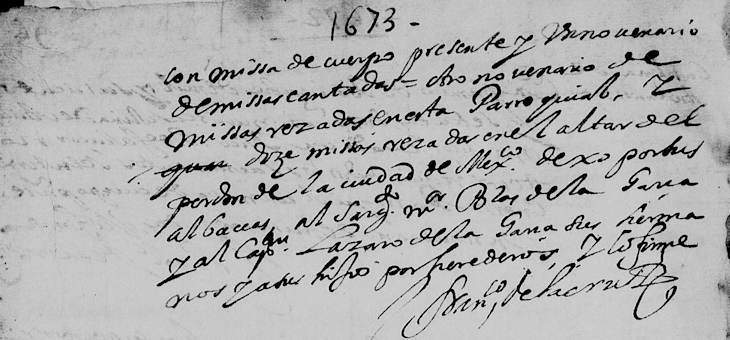 1673 -
con missa de cuerpo presente y Un novenario
de missas cantadas = otro novenario de
missas rezadas en esta Parroquial, y
doze missas rezadas en el altar de el
perdon de la ciudad de Mexco. dexo por sus
albaceas, al Sargto. mor. Blas de la Garza
y al Capn. Lazaro de la Garza sus herma
nos y a sus hijos por herederos, y lo firme
Franco. de la Cruz